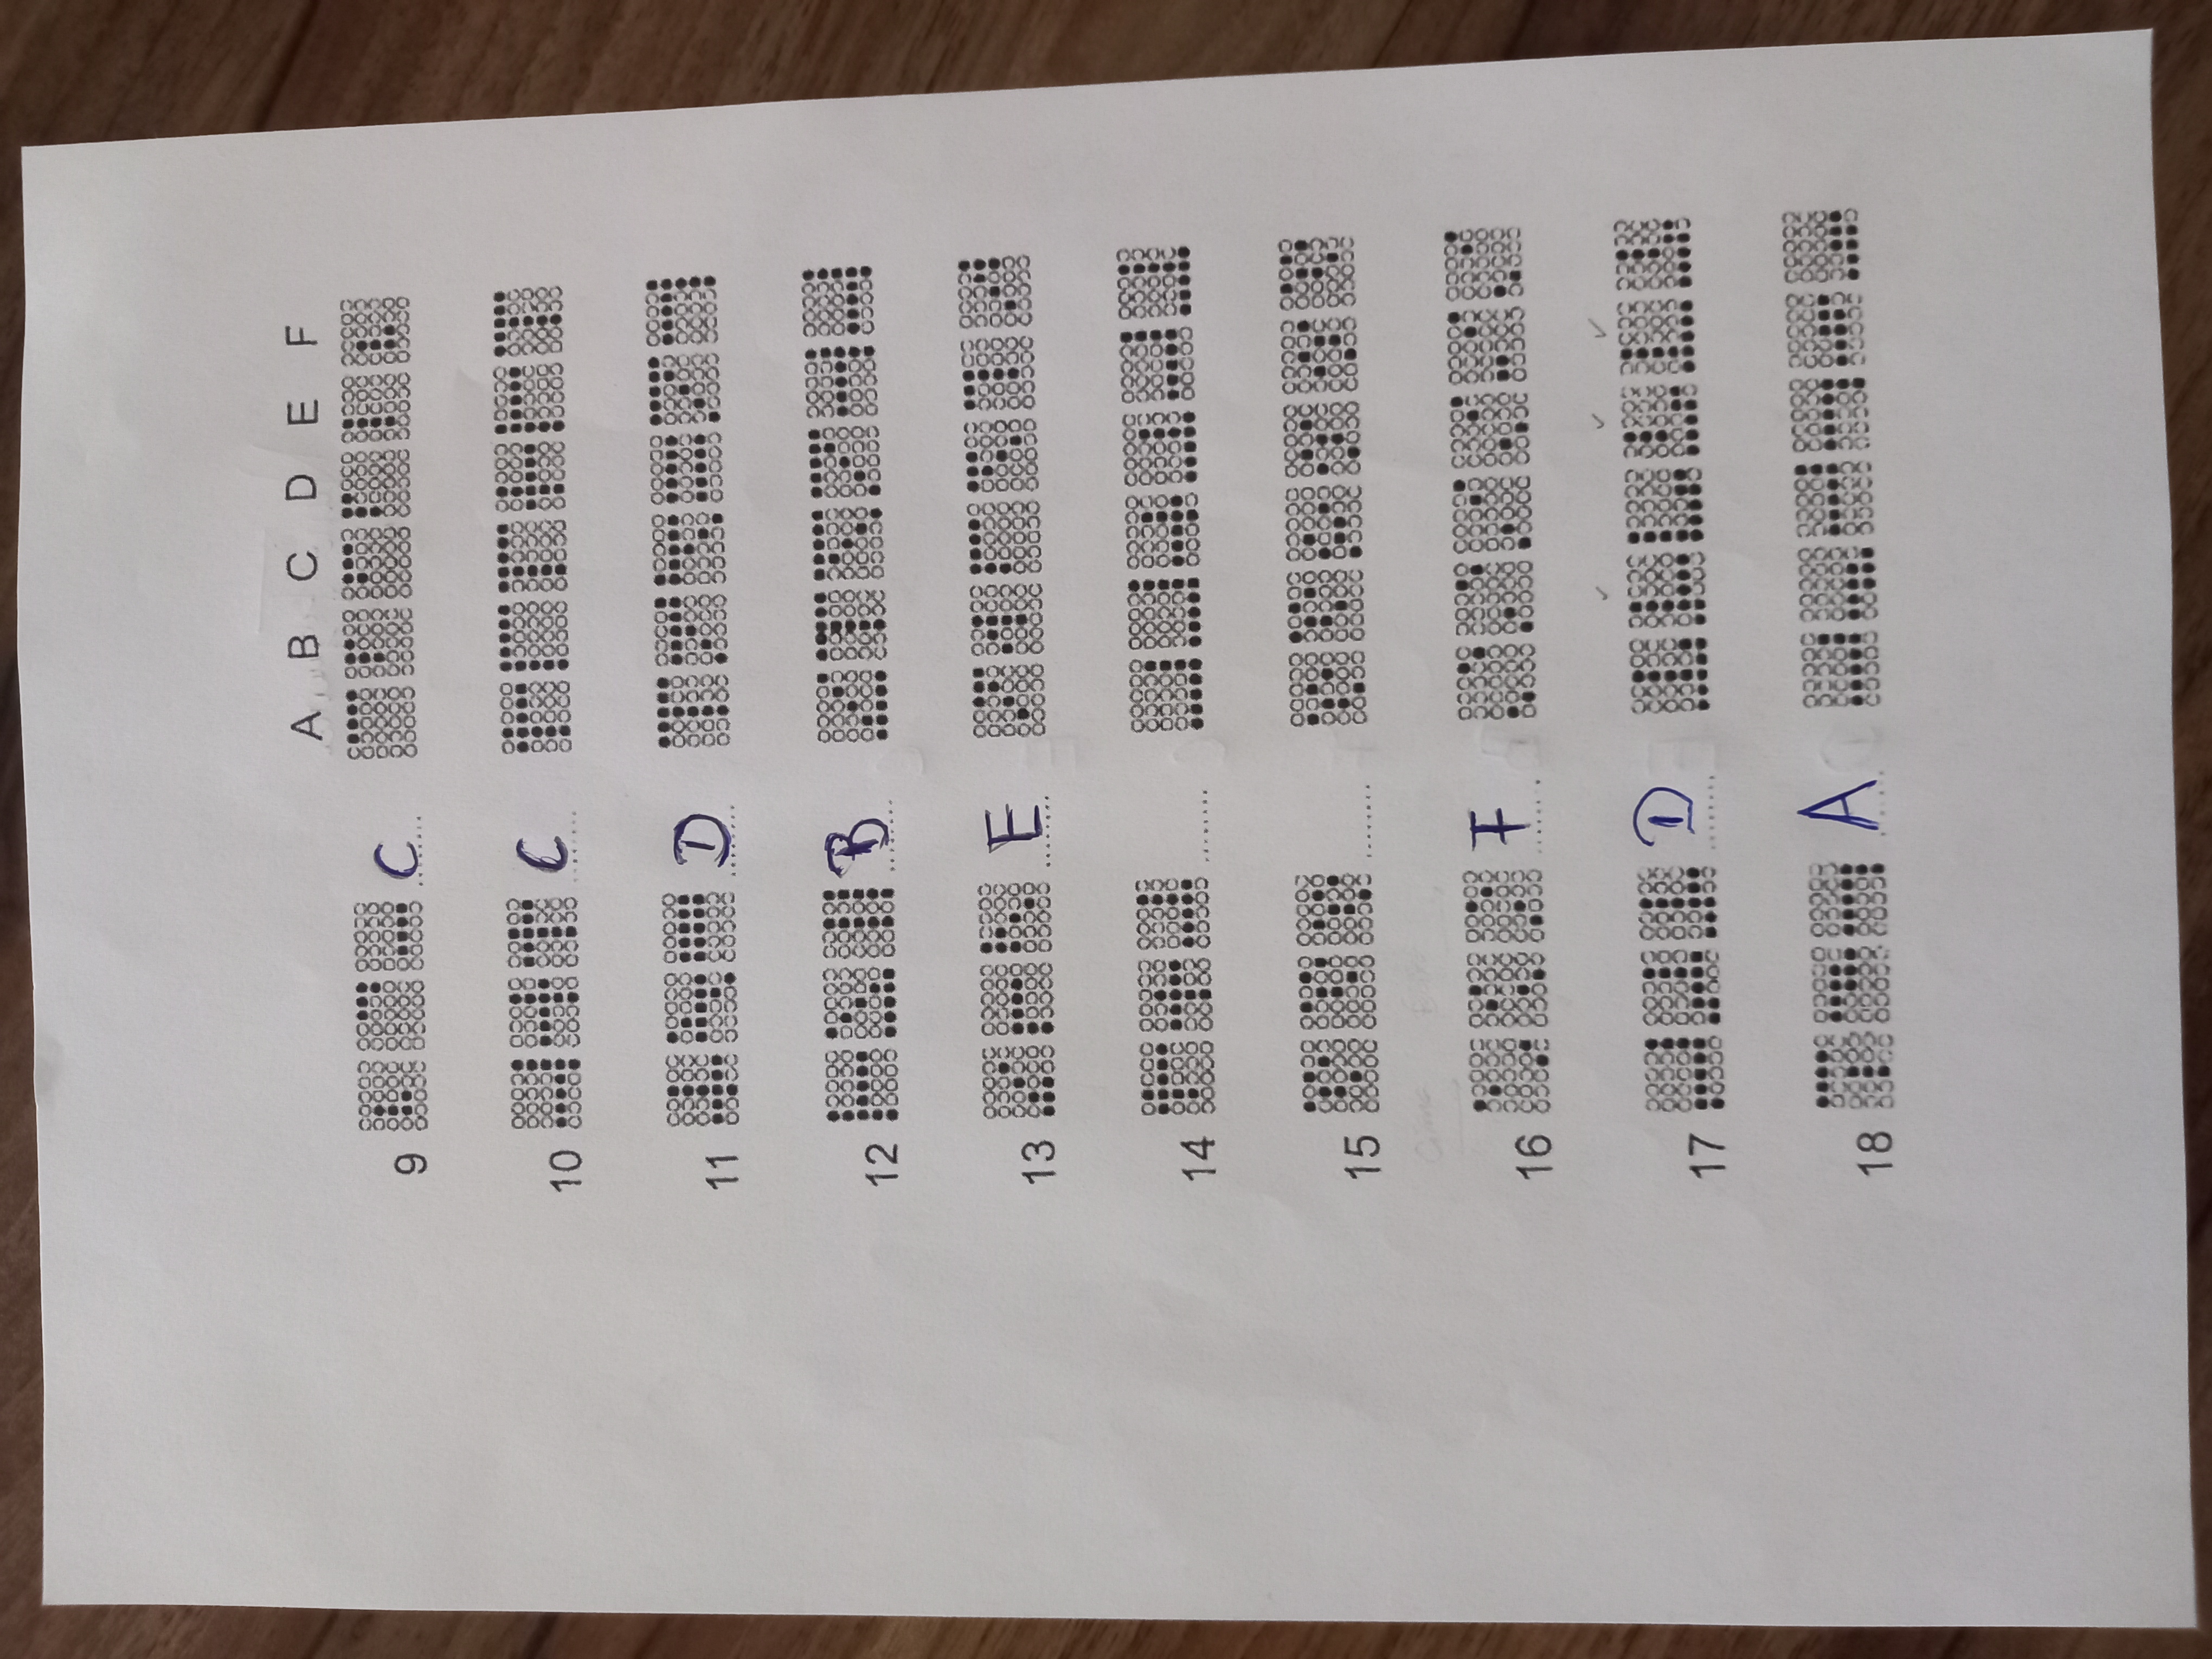 A B C D E F
9 C
10 C
11 D
12 B
13 E
14
15
16 F
17 D
18 A